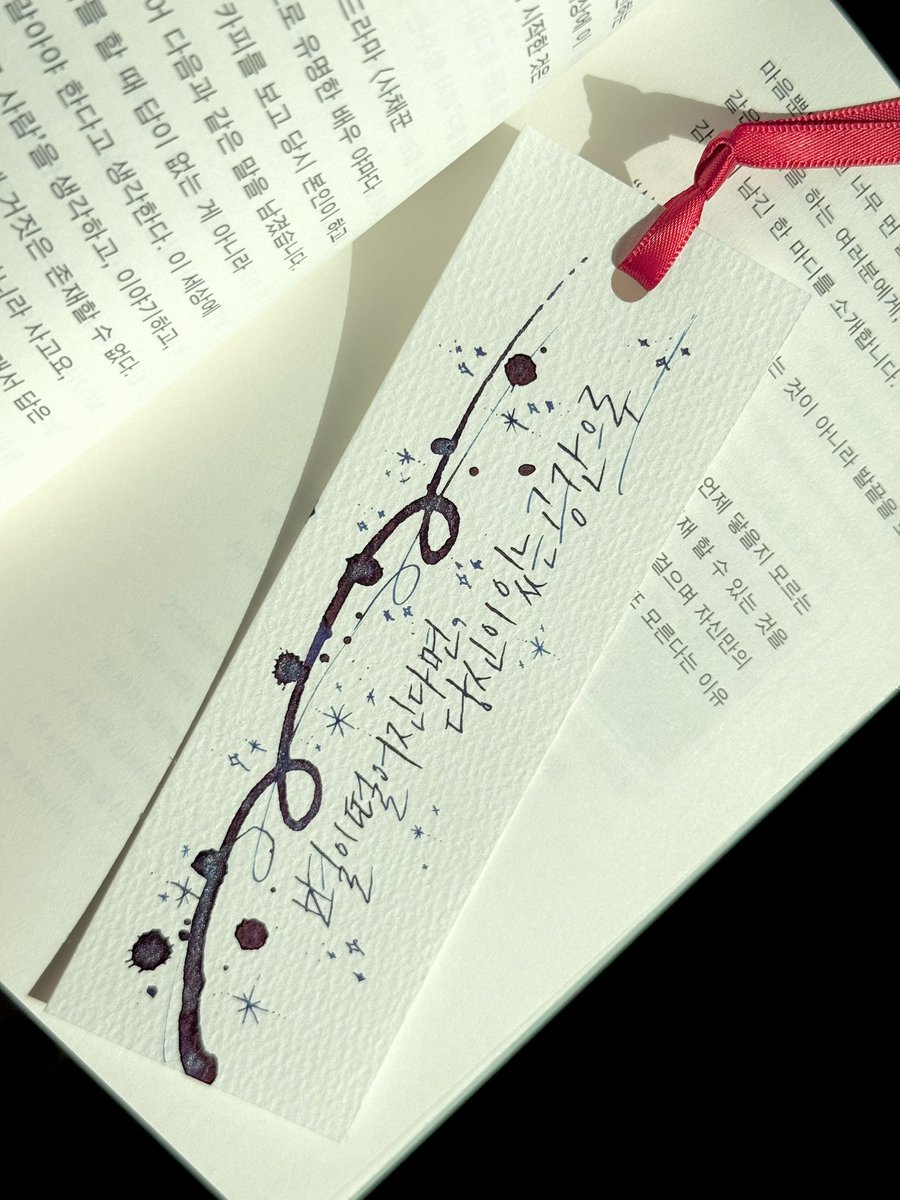 드라마 <사채꾼
로 유명한 배우 야마다
카피를 보고 당시 본인이 하고
어 다음과 같은 말을 남겼습니다.
를 할 때 답이 없는 게 아니라
말아야 한다고 생각한다. 이 세상에
사람'을 생각하고, 이야기하고,
거짓은 존재할 수 없다.
니라 사고요,
답은
상에 이
시작한 것은
별이 떨어진다면,
당신이 있는 공간으로
마음뿐
너무 먼
을 하는 여러분에게,
남긴 한 마디를 소개합니다.
는 것이 아니라 발끝을
언제 닿을지 모르는
재 할 수 있는 것을
걸으며 자신만의
모른다는 이유